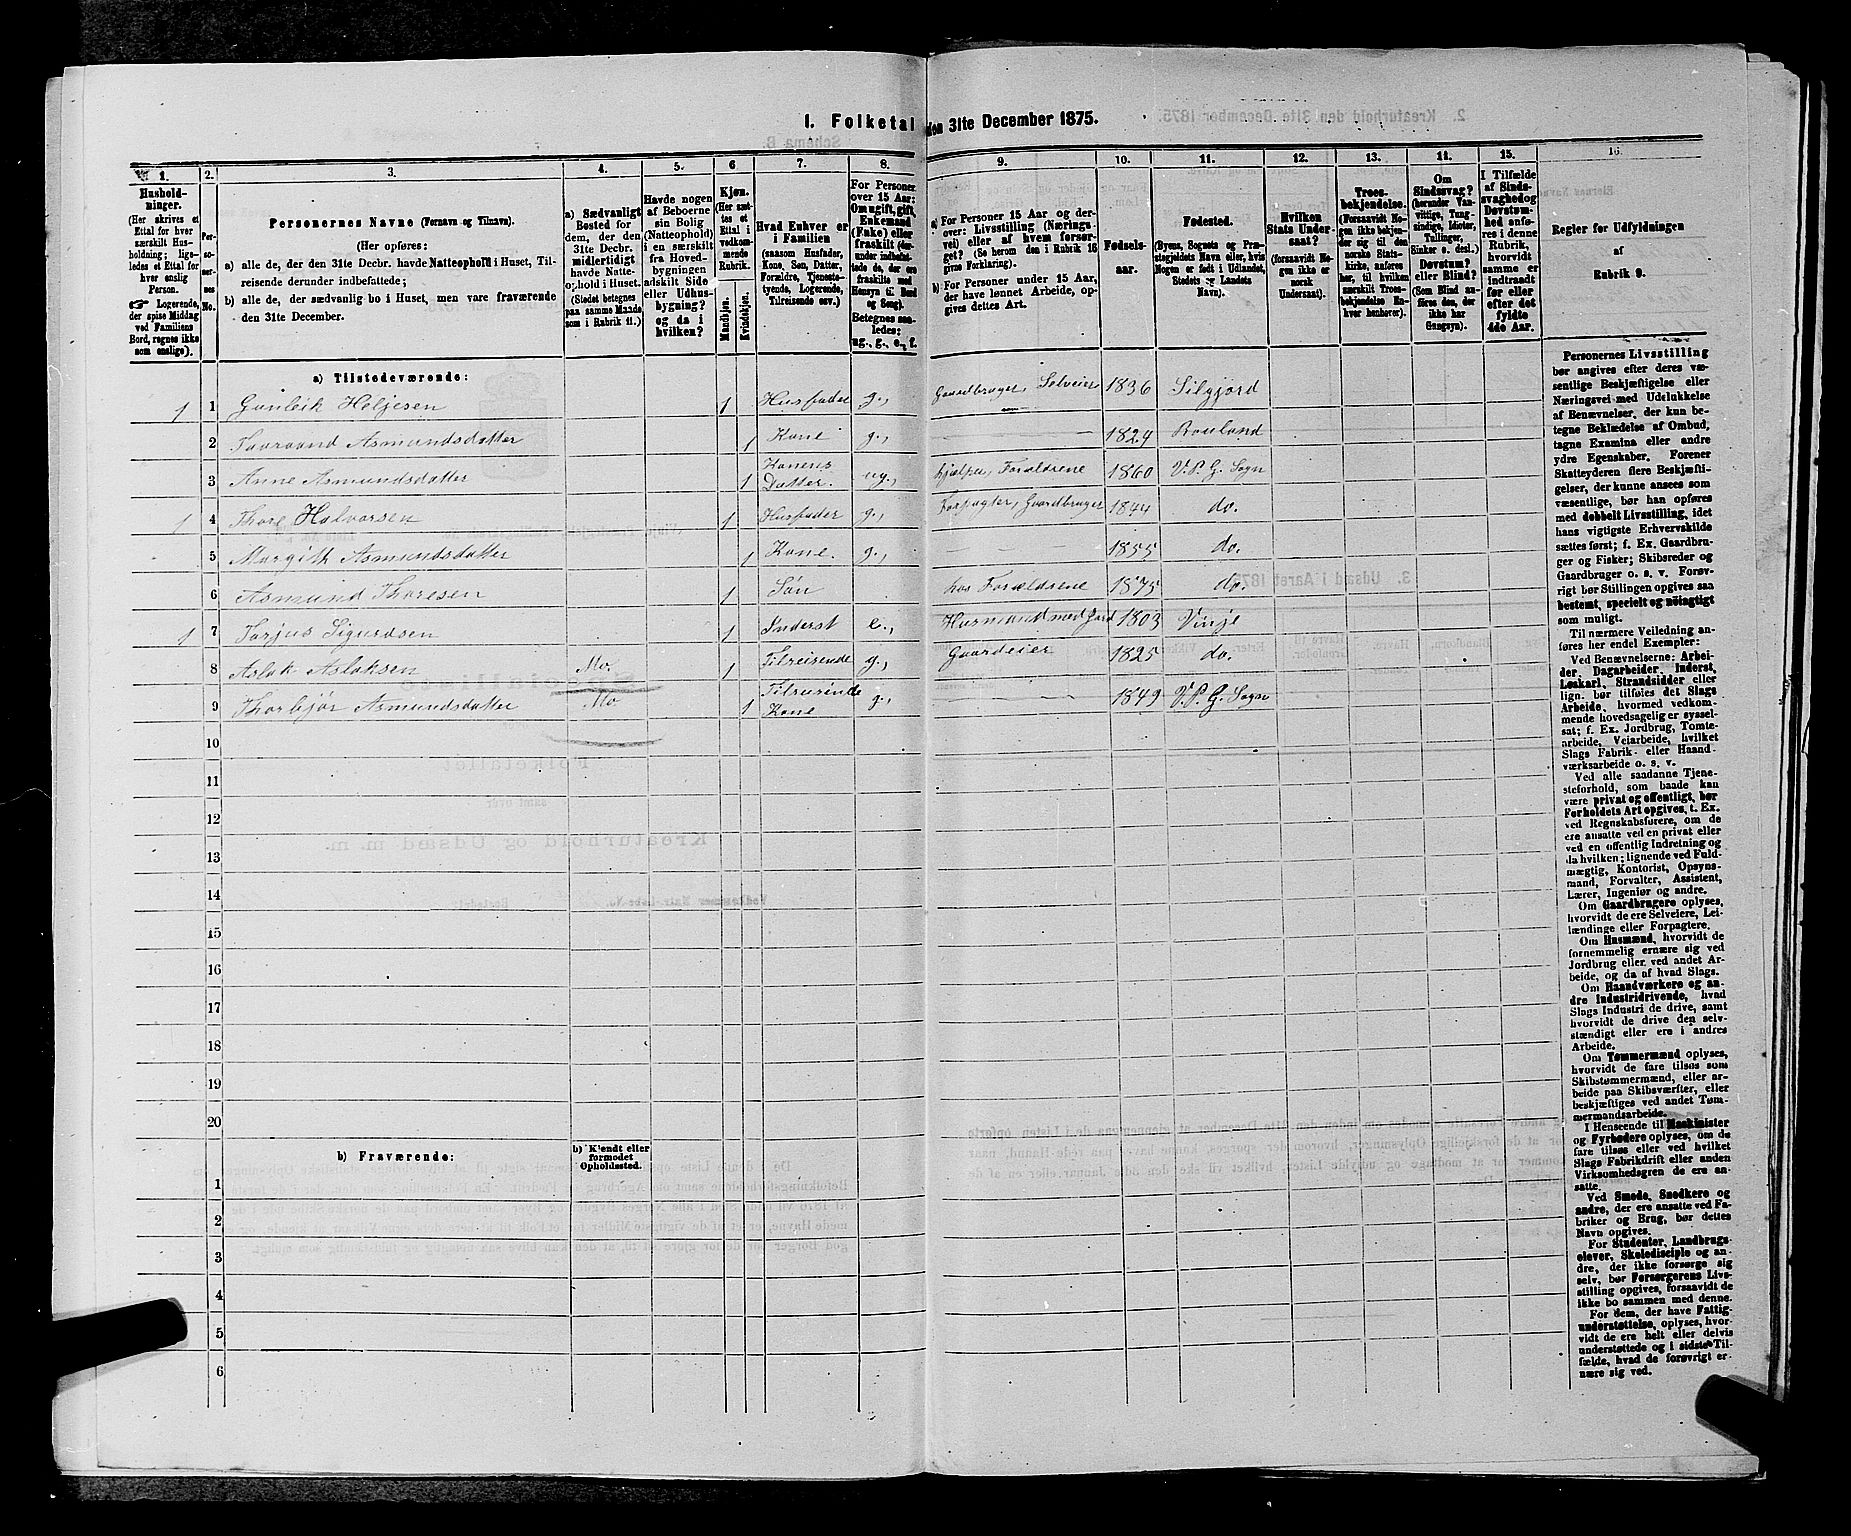 1. Folketal den 31te December 1875.
1.
Hushold-
ninger.
(Her skrives et
Ettal for hver
særskilt Hus-
holdning; lige-
ledes et Ettal for
hver enslig
Person.
☞ Logerende,
der spise Middag
ved Familiens
Bord, regnes ikke
som enslige).
2.
Per-
so-
ner-
nes
No.
3.
Personernes Navne (Fornavn og Tilnavn).
(Her opføres:
a) alle de, der den 31te Decbr. havde Natteophold i Huset, Til-
reisende derunder indbefattede;
b) alle de, der sædvanlig bo i Huset, men vare fraværende
den 31te December.
4.
a) Sædvanligt
Bosted for
dem, der den
31te Decbr.
midlertidigt
havde Natte-
ophold i Huset.
(Stedet betegnes
paa samme Maade
som i Rubrik 11.)
5.
Havde nogen
af Beboerne
sin Bolig
(Natteophold)
i en særskilt
fra Hoved-
bygningen
adskilt Side
eller Udhus-
bygning?
og da i
hvilken?
6
Kjøn.
(Her sæt-
tes et
Ettal i
vedkom-
mende
Rubrik.
Mandkjøn.
Kvindekjøn.
7.
Hvad Enhver er
i Familien
(saasom Husfader,
Kone, Søn, Datter,
Forældre, Tjeneste-
tyende, Logerende,
Tilreisende osv.)
8.
For Personer
over 15 Aar:
Om ugift, gift,
Enkemand
(Enke) eller
fraskilt (der-
under indbefat-
tede de, der ere
fraskilte med
Hensyn til Bord
og Seng).
Betegnes saa-
ledes:
ug., g., e., f.
9.
a) For Personer 15 Aar og der-
over: Livsstilling (Nærings-
vei) eller af hvem forsør-
get? (Se herom den i Rubrik 16
givne Forklaring).
b) For Personer under 15 Aar,
der have lønnet Arbeide, op-
gives dettes Art.
10.
Fødsels-
aar.
11.
Fødested.
(Byens, Sognets og Præ-
stegjeldets Navn eller, hvis
Nogen er født i Udlandet,
Stedets og Landets
Navn).
12.
Hvilken
Stats Under-
saat?
(forsaavidt No-
gen ikke er
norsk
Undersaat).
13.
Troes-
bekjendelse.
(Forsaavidt No-
gen ikke bekjen-
der sig til den
norske Stats-
kirke, anføres
her, til hvilken
særskilt Troes-
bekjendelse En-
hver henhører).
14.
Om
Sindssvag?
(herunder Van-
vittige, Tung-
sindige, Idioter,
Tullinger,
Sinker o. desl.).
Døvstum?
eller Blind?
(Som Blind an-
føres den, der
ikke har
Gangsyn).
15.
I Tilfælde
af Sinds-
svaghed og
Døvstum-
hed anfø-
res i denne
Rubrik,
hvorvidt
samme er
indtraadt
før eller
efter det
fyldte
4de Aar.
16.
Regler for Udfyldningen
af
Rubrik 9.
a) Tilstedeværende:
1 1 Gunleik Heljesen 1 Husfader g., Gaardbruger, Selveier 1836 Silgjord
2 Asmundsdatter 1 Kone g., 1824 Rauland
3 Anne Asmundsdatter 1 Konens Datter. ug., hjælper Forældrene 1860 V.P.G. Sogn
1 4 Thore Halvorsen 1 Husfader g., Forpagter, Gaardbruger 1844 do.
5 Margith Asmundsdatter 1 Kone. g., 1855 do.
6 Asmund Thoresen 1 Søn hos Forældrene 1875 do.
1 7 Torjus Sigurdsen 1 Inderst e., Husmand med Jord 1803 Vinje
8 Aslak Aslaksen Mo. 1 Tilreisende g., Gaardeier 1825 do.
9 Thorbjør Asmundsdatter Mo 1 Tilreisende Kone g., 1849 V.P.G. Sogn
10
11
12
13
14
15
16
17
18
19
20
b) Fraværende:
b) Kjendt eller
formodet
Opholdssted.
1
2
3
4
5
6
Personernes Livsstilling
bør angives efter deres væ-
sentlige Beskjæftigelse eller
Næringsvei med Udelukkelse
af Benævnelser, der kun be-
tegne Beklædelse af Ombud,
tagne Examina eller andre
ydre Egenskaber. Forener
Skatteyderen flere Beskjæfti-
gelser, der kunne ansees som
væsentlige, bør han opføres
med dobbelt Livsstilling, idet
hans vigtigste Erhvervskilde
sættes først; f. Ex. Gaardbru-
ger og Fisker; Skibsreder og
Gaardbruger o. s. v. Forøv-
rigt bør Stillingen opgives saa
bestemt, specielt og nøiagtigt
som muligt.
Til nærmere Veiledning an-
føres her endel Exempler:
Ved Benævnelserne: Arbei-
der, Dagarbeider, Inderst,
Løskarl, Strandsidder eller
lign. bør tilføies det Slags
Arbeide, hvormed vedkom-
mende hovedsagelig er syssel-
sat; f. Ex. Jordbrug, Tomte-
arbeide, Veiarbeide, hvilket
Slags Fabrik- eller Haand-
værksarbeide o. s. v.
Ved alle saadanne Tjene-
steforhold, som baade kan
være privat og offentligt, bør
Forholdets Art opgives, t. Ex.
ved Regnskabsførere, om de
ere ansatte ved en privat eller
ved en offentlig Indretning og
da hvilken; lignende ved Fuld-
mægtig, Kontorist, Opsyns-
mand, Forvalter, Assistent,
Lærer, Ingeniør og andre.
Om Gaardbrugere oplyses,
hvorvidt de ere Selveiere, Lei-
lændinge eller Forpagtere.
Om Husmænd, hvorvidt de
fornemmelig ernære sig ved
Jordbrug eller ved andet Ar-
beide, og da af hvad Slags.
Om Haandværkere og an-
dre Industridrivende, hvad
Slags Industri de drive, samt
hvorvidt de drive den selv-
stændigt eller ere i andres
Arbeide.
Om Tømmermænd oplyses,
hvorvidt de fare tilsøs som
Skibstømmermænd, eller ar-
beide paa Skibsværfter, eller
beskjæftiges ved andet Tøm-
mermandsarbeide.
I Henseende til Maskinister
og Fyrbødere oplyses, om de
fare tilsøs eller ved hvilket
Slags Fabrikdrift eller anden
Virksomhedsgren de ere an-
satte.
Ved Smede, Snedkere og
andre, der ere ansatte ved Fa-
briker og Brug, bør dettes
Navn opgives.
For Studenter, Landbrugs-
elever, Skoledisciple og an-
dre, der ikke forsørge sig
selv, bør Forsørgerens Livs-
stilling opgives, forsaavidt de
ikke bo sammen med denne.
For dem, der have Fattig-
understøttelse, oplyses, hvor-
vidt de ere helt eller delvis
understøttede og i sidste Til-
fælde, hvad de forøvrigt er-
nære sig ved.